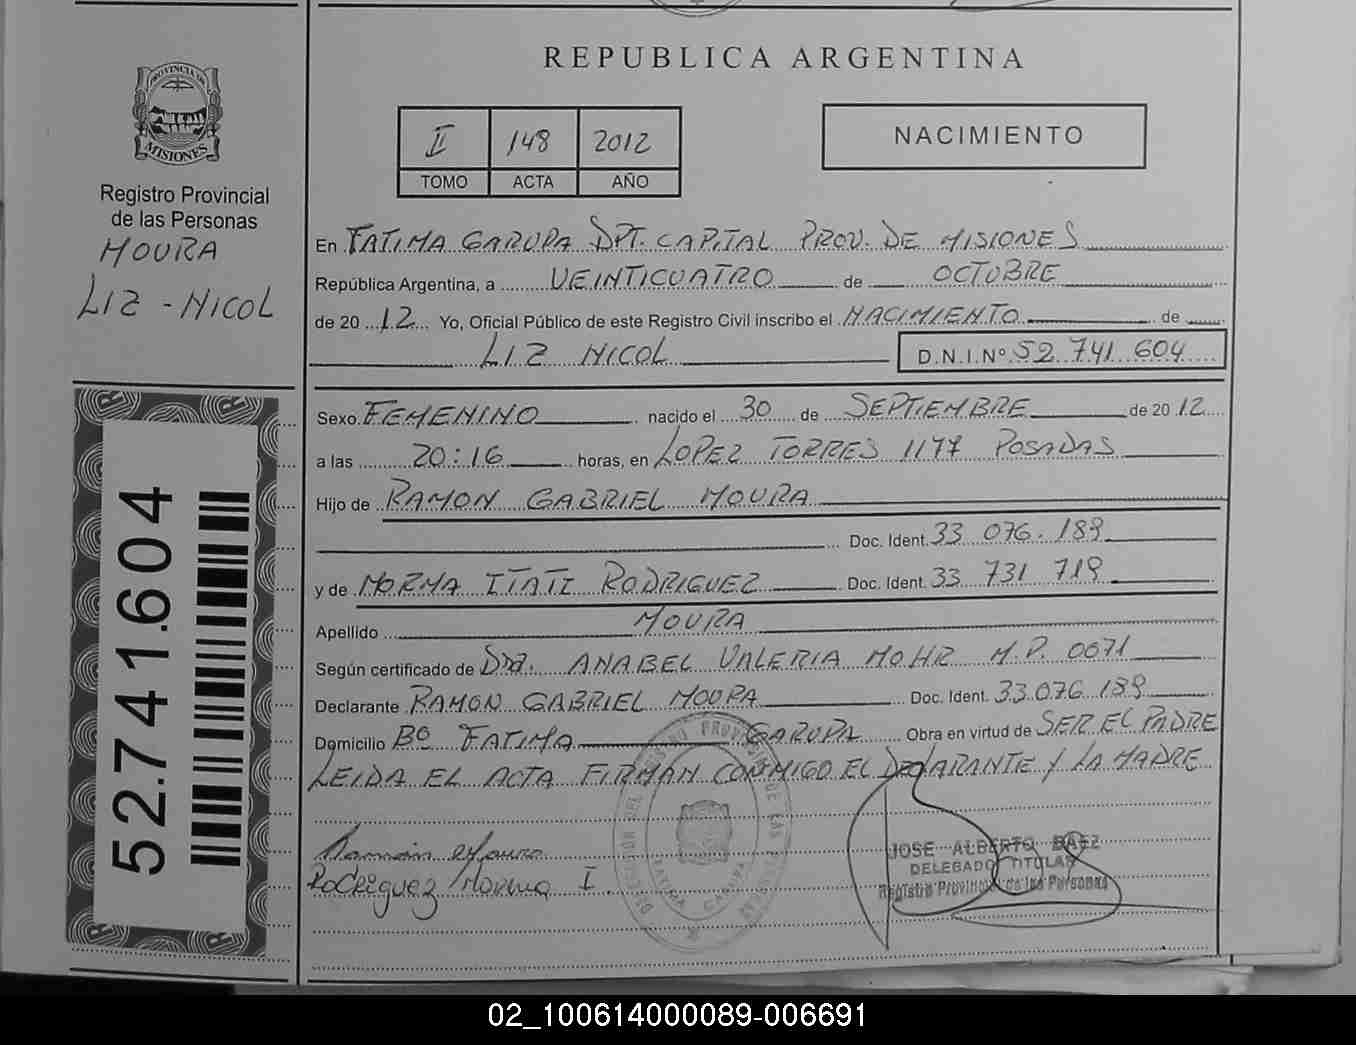 REPUBLICA ARGENTINA
PROVINCIA DE
MISIONES
Registro Provincial
de las Personas
MOURA
LIZ - NICOL
52.741.604
II 148 2012
TOMO ACTA AÑO
NACIMIENTO
En FATIMA GARUPA DPT. CAPITAL PROV. DE MISIONES
República Argentina, a VEINTICUATRO de OCTUBRE
de 2012 Yo, Oficial Público de este Registro Civil inscribo el NACIMIENTO de
LIZ NICOL D.N.I.Nº 52 741 604
Sexo FEMENINO nacido el 30 de SEPTIEMBRE de 2012
a las 20:16 horas, en LOPEZ TORRES 1177 POSADAS
Hijo de RAMON GABRIEL MOURA
Doc. Ident. 33 076.189
y de NORMA ITATI RODRIGUEZ Doc. Ident. 33 731 719
Apellido MOURA
Según certificado de Dra. ANABEL VALERIA MOHR M.P. 0671
Declarante RAMON GABRIEL MOURA Doc. Ident. 33.076 189
Domicilio Bº FATIMA GARUPA Obra en virtud de SER EL PADRE
LEIDA EL ACTA FIRMAN CONMIGO EL DECLARANTE Y LA MADRE
Ramón Moura
Rodriguez Norma I.
JOSE ALBERTO BAEZ
DELEGADO TITULAR
Registro Provincial de las Personas
02_100614000089-006691